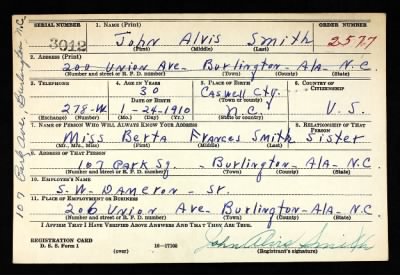 SERIAL NUMBER 1. NAME (Print) ORDER NUMBER
3012 John Alvis Smith 2577
(First) (Middle) (Last)
2. ADDRESS (Print)
200 Union Ave- Burlington- Ala- N.C.
(Number and street or R. F. D. number) (Town) (County) (State)
3. TELEPHONE 4. AGE IN YEARS 5. PLACE OF BIRTH 6. COUNTRY OF CITIZENSHIP
30 Caswell Cty.
DATE OF BIRTH (Town or county)
278-W 1-24-1910 N.C. U.S.
(Exchange) (Number) (Mo.) (Day) (Yr.) (State or country)
7. NAME OF PERSON WHO WILL ALWAYS KNOW YOUR ADDRESS 8. RELATIONSHIP OF THAT PERSON
Miss Berta Frances Smith Sister
(Mr., Mrs., Miss) (First) (Middle) (Last)
9. ADDRESS OF THAT PERSON
107 Park Sq. - Burlington- Ala- N.C.
(Number and street or R. F. D. number) (Town) (County) (State)
10. EMPLOYER'S NAME
S. W. Dameron - Sr.
11. PLACE OF EMPLOYMENT OR BUSINESS
206 Union Ave- Burlington- Ala- N.C.
(Number and street or R. F. D. number) (Town) (County) (State)
I AFFIRM THAT I HAVE VERIFIED ABOVE ANSWERS AND THAT THEY ARE TRUE.
REGISTRATION CARD
D. S. S. Form 1 (over) 16-17105 John Alvis Smith
(Registrant's signature)
107 Park Ave. Burlington N.C.